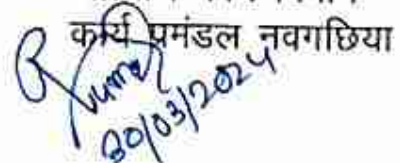 कार्य प्रमंडल नवगछिया
Kumar
30/03/2024